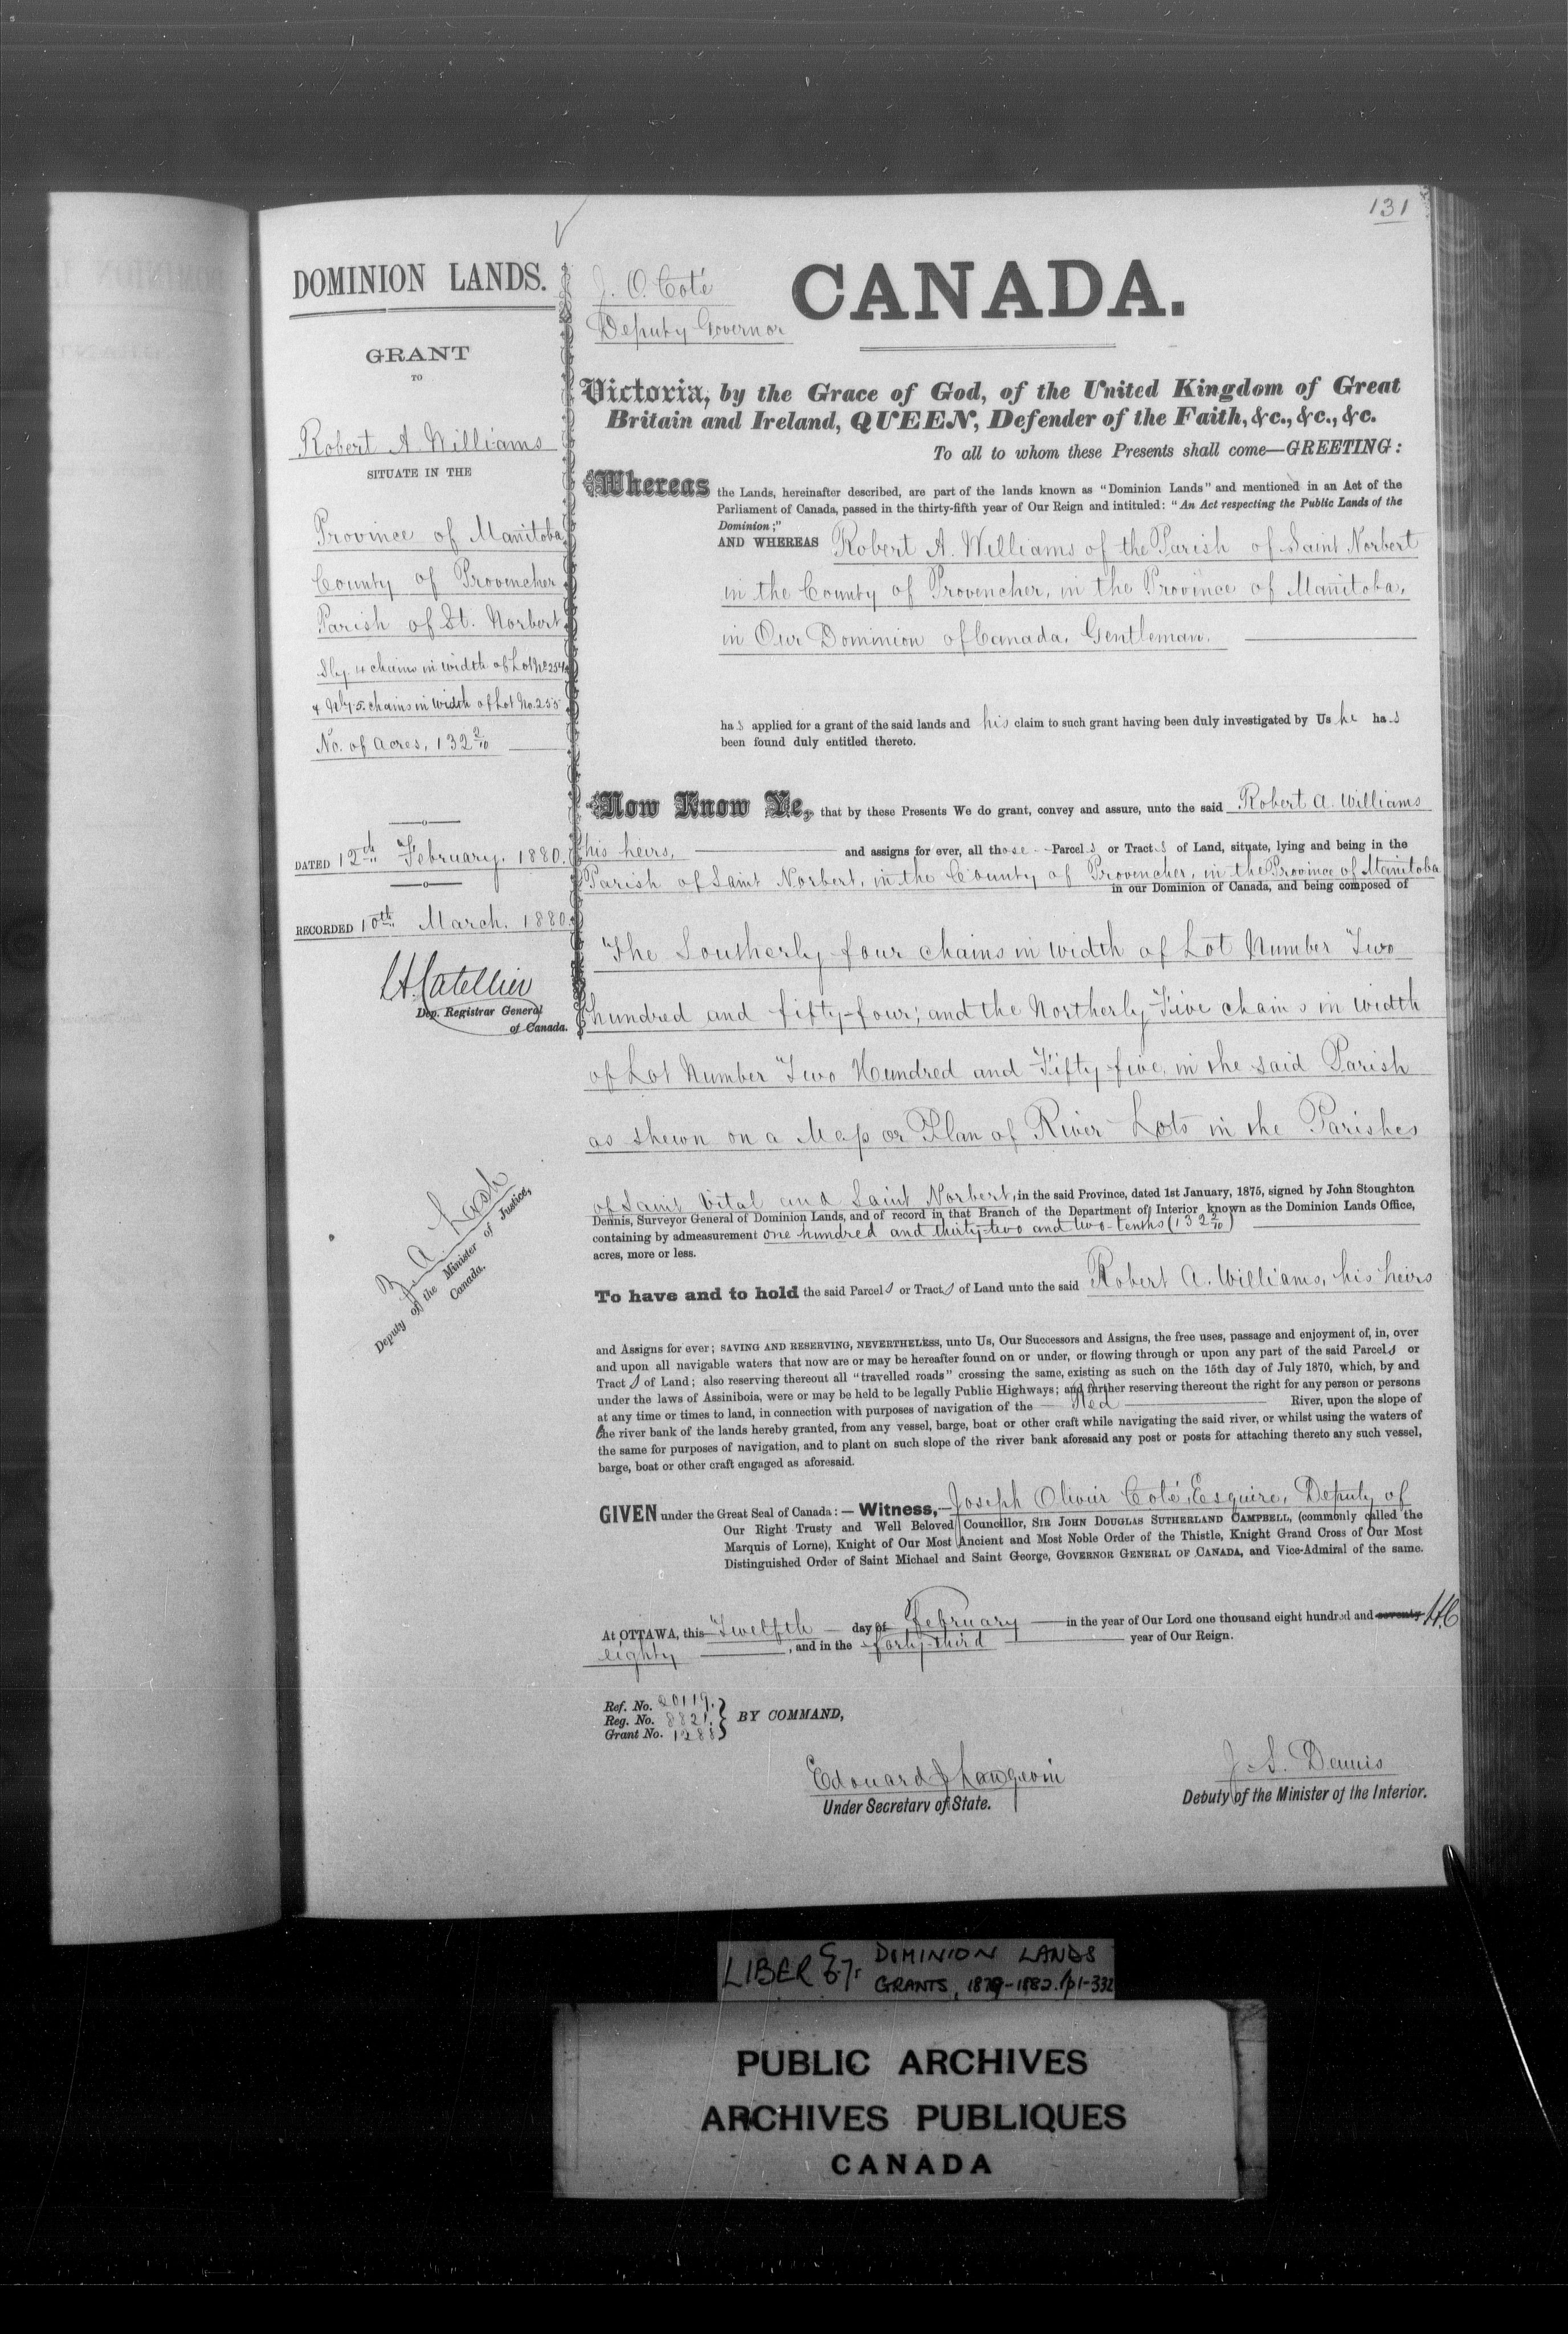 131
DOMINION LANDS.
GRANT
TO
Robert A. Williams
SITUATE IN THE
Province of Manitoba
County of Provencher
Parish of St. Norbert
Sly. 4 chains in width of Lot No 254
& Nly 5. chains in width of Lot No. 255
No. of Acres, 132 2/10
DATED 12th February. 1880.
RECORDED 10th March. 1880.
Dep. Registrar General
of Canada.
Z. A. Lash
Deputy of the Minister of Justice,
Canada.
J. O. Coté
Deputy Governor
CANADA.
Victoria, by the Grace of God, of the United Kingdom of Great
Britain and Ireland, QUEEN, Defender of the Faith, &c., &c., &c.
To all to whom these Presents shall come—GREETING:
Whereas the Lands, hereinafter described, are part of the lands known as "Dominion Lands" and mentioned in an Act of the
Parliament of Canada, passed in the thirty-fifth year of Our Reign and intituled: "An Act respecting the Public Lands of the
Dominion;"
AND WHEREAS Robert A. Williams of the Parish of Saint Norbert
in the County of Provencher, in the Province of Manitoba,
in Our Dominion of Canada, Gentleman.
has applied for a grant of the said lands and his claim to such grant having been duly investigated by Us he has
been found duly entitled thereto.
Now Know Ye, that by these Presents We do grant, convey and assure, unto the said Robert A. Williams
his heirs, and assigns for ever, all those Parcels or Tracts of Land, situate, lying and being in the
Parish of Saint Norbert, in the County of Provencher, in the Province of Manitoba
in our Dominion of Canada, and being composed of
The Southerly four chains in width of Lot Number Two
hundred and fifty-four; and the Northerly Five chains in width
of Lot Number Two Hundred and Fifty five, in the said Parish
as shewn on a Map or Plan of River Lots in the Parishes
of Saint Vital and Saint Norbert, in the said Province, dated 1st January, 1875, signed by John Stoughton
Dennis, Surveyor General of Dominion Lands, and of record in that Branch of the Department of Interior known as the Dominion Lands Office,
containing by admeasurement one hundred and thirty-two and two-tenths (132 2/10)
acres, more or less.
To have and to hold the said Parcels or Tracts of Land unto the said Robert A. Williams, his heirs
and Assigns for ever; SAVING AND RESERVING, NEVERTHELESS, unto Us, Our Successors and Assigns, the free uses, passage and enjoyment of, in, over
and upon all navigable waters that now are or may be hereafter found on or under, or flowing through or upon any part of the said Parcels or
Tracts of Land; also reserving thereout all "travelled roads" crossing the same, existing as such on the 15th day of July 1870, which, by and
under the laws of Assiniboia, were or may be held to be legally Public Highways; and further reserving thereout the right for any person or persons
at any time or times to land, in connection with purposes of navigation of the Red River, upon the slope of
the river bank of the lands hereby granted, from any vessel, barge, boat or other craft while navigating the said river, or whilst using the waters of
the same for purposes of navigation, and to plant on such slope of the river bank aforesaid any post or posts for attaching thereto any such vessel,
barge, boat or other craft engaged as aforesaid.
GIVEN under the Great Seal of Canada:—Witness,—Joseph Olivier Coté, Esquire, Deputy of
Our Right Trusty and Well Beloved Councillor, SIR JOHN DOUGLAS SUTHERLAND CAMPBELL, (commonly called the
Marquis of Lorne), Knight of Our Most Ancient and Most Noble Order of the Thistle, Knight Grand Cross of Our Most
Distinguished Order of Saint Michael and Saint George, GOVERNOR GENERAL OF CANADA, and Vice-Admiral of the same.
At OTTAWA, this Twelfth day of February in the year of Our Lord one thousand eight hundred and seventy
eighty, and in the forty-third year of Our Reign.
Ref. No. 20119.
Reg. No. 8821.
Grant No. 1288
BY COMMAND,
Edouard J Langevin
Under Secretary of State.
J. S. Dennis
Deputy of the Minister of the Interior.
LIBER DOMINION LANDS
GRANTS, 1879-1882. pp1-332
PUBLIC ARCHIVES
ARCHIVES PUBLIQUES
CANADA